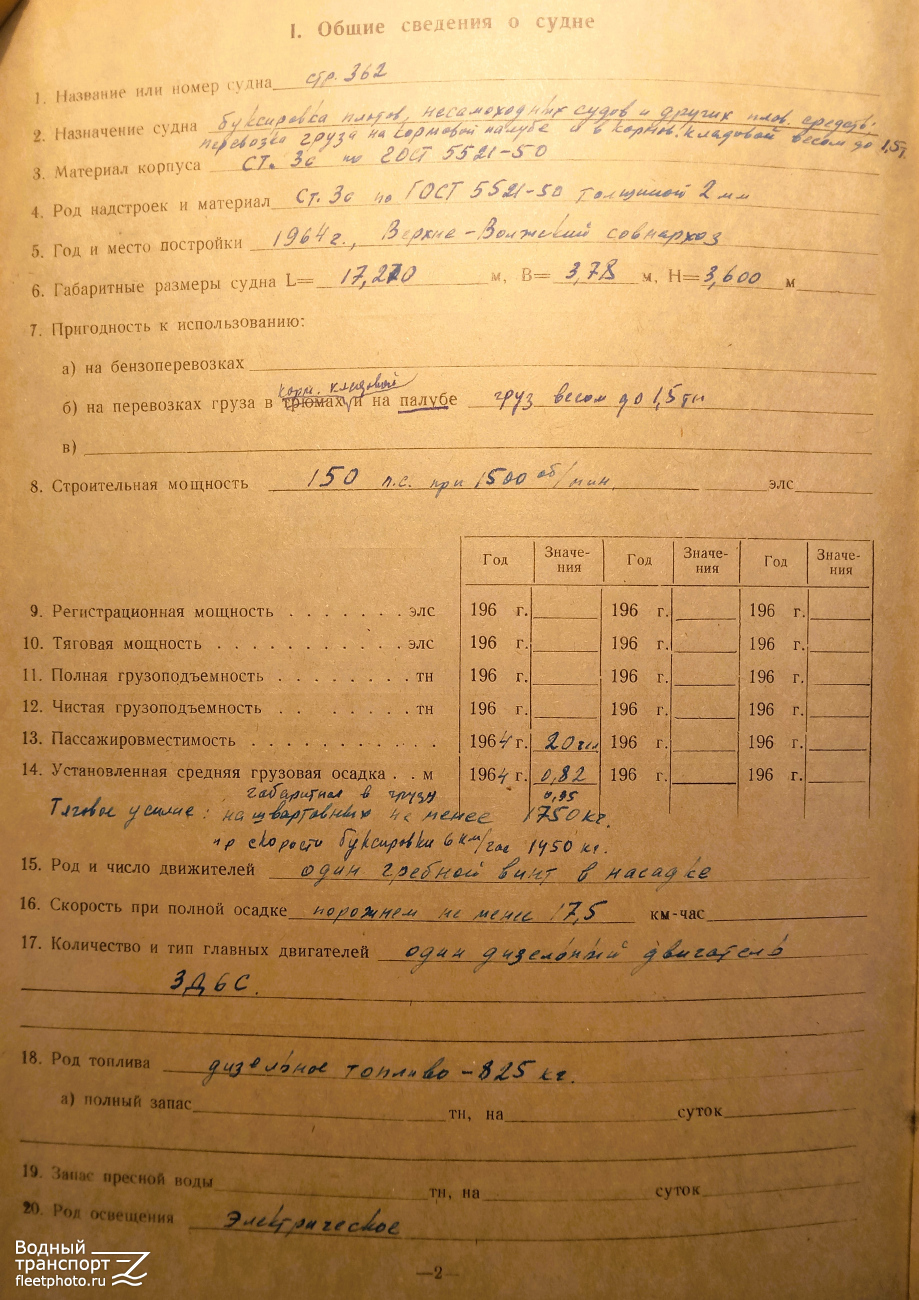 I. Общие сведения о судне
1. Название или номер судна стр. 362
2. Назначение судна буксировка плотов, несамоходных судов и других плов. средств.
перевозка груза на кормовой палубе и в кормов. кладовой весом до 1,5т.
3. Материал корпуса Ст. 3с по ГОСТ 5521-50
4. Род надстроек и материал Ст. 3с по ГОСТ 5521-50 толщиной 2 мм
5. Год и место постройки 1964 г., Верхне-Волжский совнархоз
6. Габаритные размеры судна L= 17,270 м, B= 3,78 м, H= 3,600 м
7. Пригодность к использованию:
а) на бензоперевозках
корм. кладовой
б) на перевозках груза в трюмах и на палубе груз весом до 1,5 тн
в)
8. Строительная мощность 150 л.с. при 1500 об/мин. элс
Год Значе-ния Год Значе-ния Год Значе-ния
9. Регистрационная мощность . . . . . . . элс 196 г. 196 г. 196 г.
10. Тяговая мощность . . . . . . . . . . . элс 196 г. 196 г. 196 г.
11. Полная грузоподъемность . . . . . . . . тн 196 г. 196 г. 196 г.
12. Чистая грузоподъемность . . . . . . . тн 196 г. 196 г. 196 г.
13. Пассажировместимость . . . . . . . . . . . 1964 г. 20 196 г. 196 г.
14. Установленная средняя грузовая осадка . . м 1964 г. 0,82 196 г. 196 г.
габаритная в грузу 0,95
Тяговое усилие: на швартовных не менее 1750 кг.
пр скорости буксировки 6 км/час 1450 кг.
15. Род и число движителей один гребной винт в насадке
16. Скорость при полной осадке порожнем не менее 17,5 км-час
17. Количество и тип главных двигателей один дизельный двигатель
3Д6С.
18. Род топлива дизельное топливо - 825 кг.
а) полный запас тн, на суток
19. Запас пресной воды тн, на суток
20. Род освещения Электрическое
—2—
Водный
транспорт
fleetphoto.ru